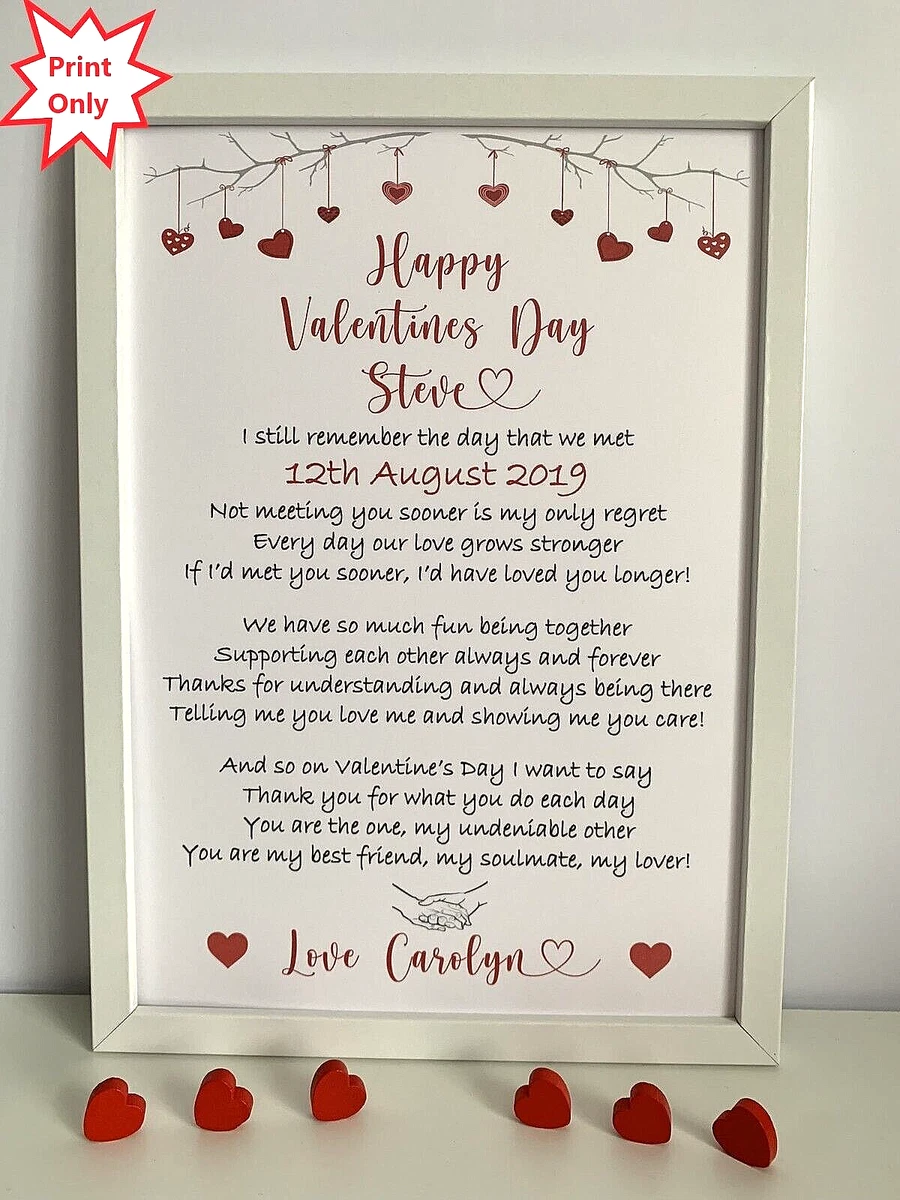 Print
Only
Happy
Valentines Day
Steve
I still remember the day that we met
12th August 2019
Not meeting you sooner is my only regret
Every day our love grows stronger
If I'd met you sooner, I'd have loved you longer!
We have so much fun being together
Supporting each other always and forever
Thanks for understanding and always being there
Telling me you love me and showing me you care!
And so on Valentine's Day I want to say
Thank you for what you do each day
You are the one, my undeniable other
You are my best friend, my soulmate, my lover!
Love Carolyn